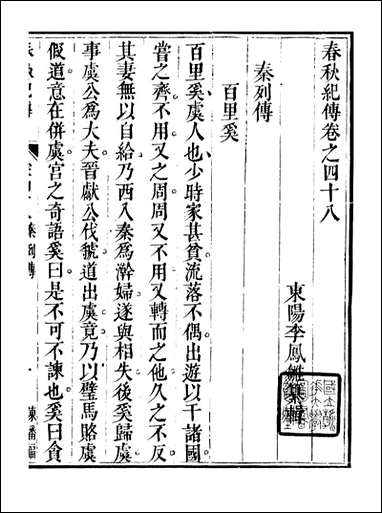 春秋紀傳卷之四十八
東陽李鳳雛集輯
秦列傳
百里奚
百里奚虞人也少時家甚貧流落不偶出遊以干諸國
嘗之齊不用又之周周又不用又轉而之他久之不反
其妻無以自給乃西入秦為澣婦遂與相失後奚歸虞
事虞公為大夫晉獻公伐虢道出虞竟乃以璧馬賂虞
假道意在併虞宮之奇語奚曰是不可不諫也奚曰食
秦列傳